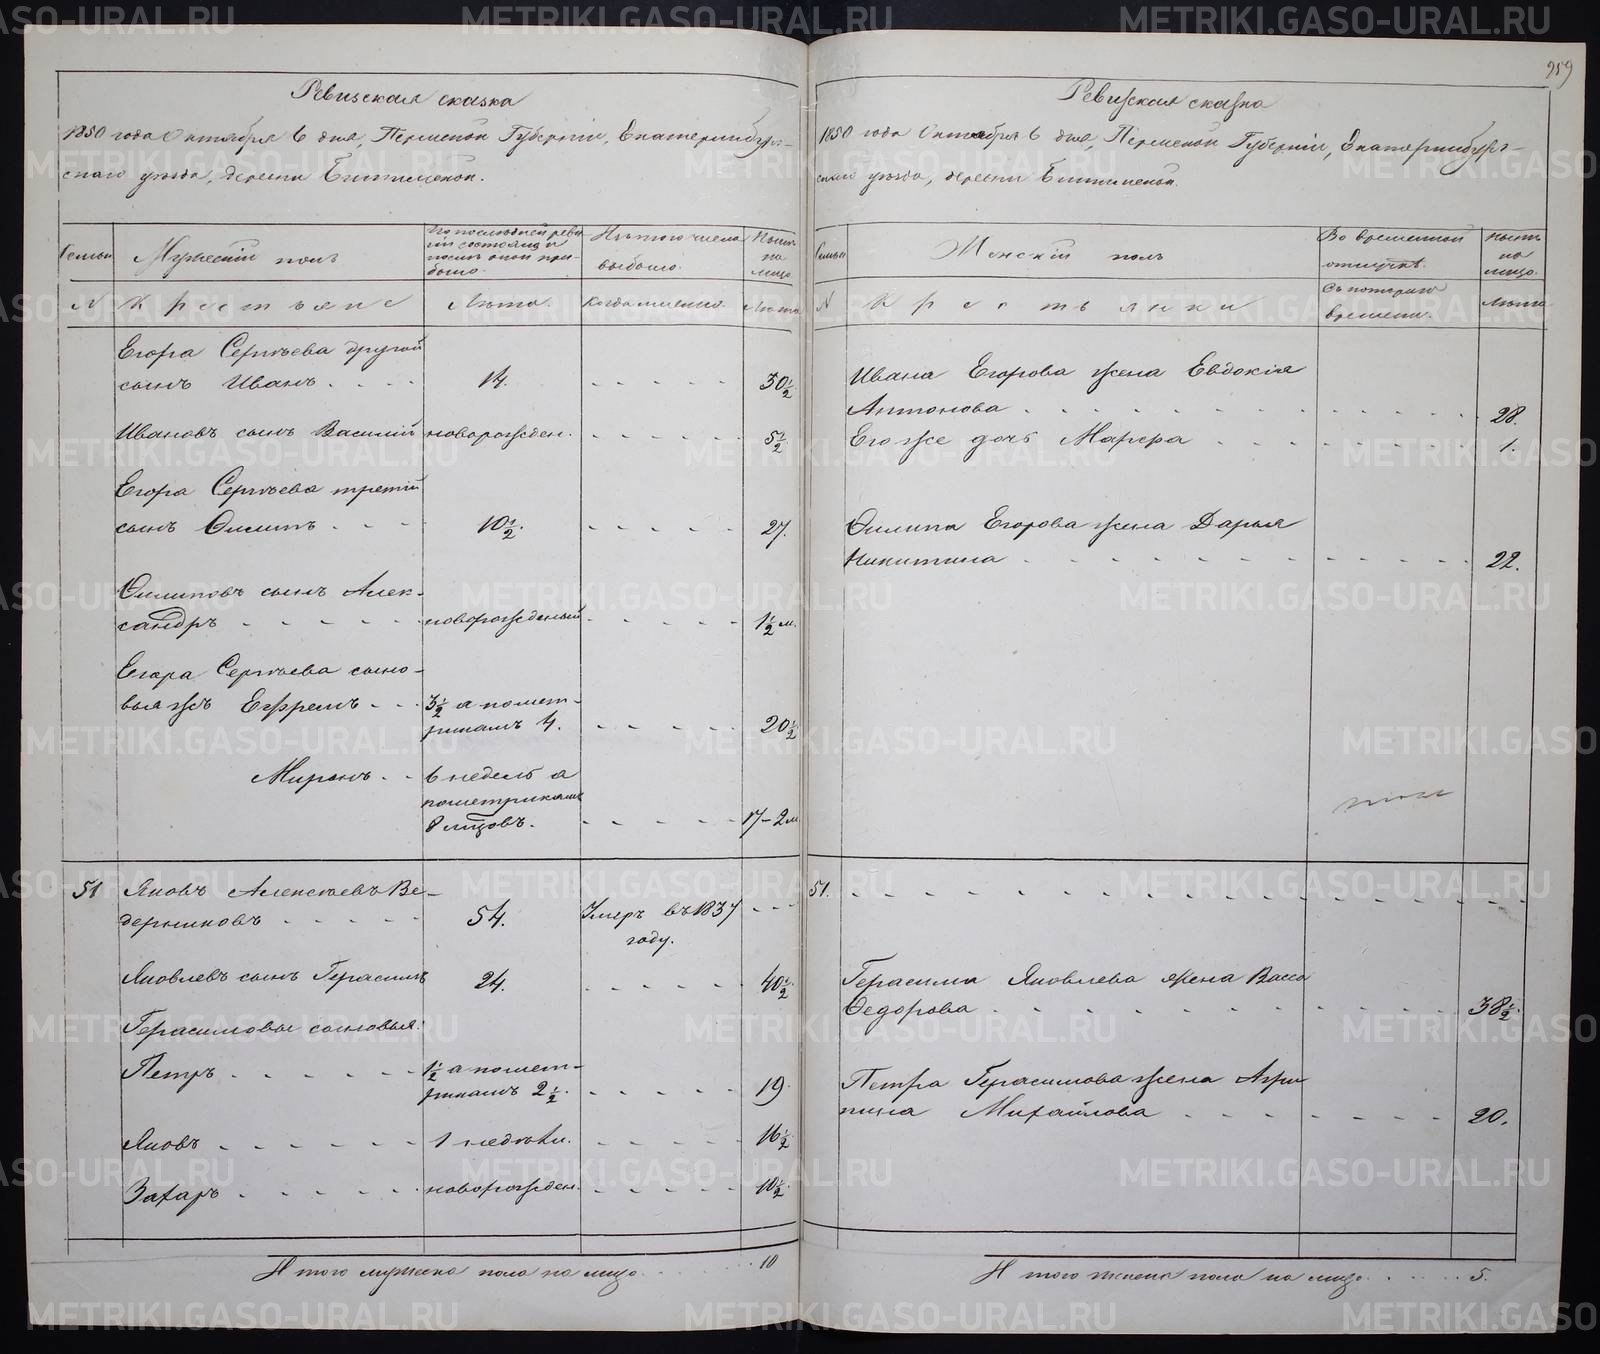 Ревизская сказка
1850 года Октября 6 дня, Пермской Губерніи, Екатеринбург-
скаго уезда, деревни Битимской.
Семьи
Мужескій полъ
По последней реви-
зіи состояло и
после оной при-
было.
Изъ того числа
выбыло.
Ныне
на
лицо
N
Крестьяне
Лета.
Когда именно.
Лета
Егора Сергеева другой
сынъ Иванъ . . . . 14. - - - - - 30½
Ивановъ сынъ Василій новорожден. - - - - - 5½
Егора Сергеева третій
сынъ Филипъ - - - 10½. - - - - - 27.
Филиповъ сынъ Алек-
сандръ - - - - - новорожденый - - - - - 1½ м.
Егора Сергеева сыно-
вья жъ Ефремъ - - 3½ а по мет-
рикамъ 4. - - - - - 20½
Миронъ . - 6 недель а
по метрикамъ
8 мцовъ. - - - - - 17-2 м
51 Яковъ Алексеевъ Ве-
дерниковъ - - - - - 54. Умеръ въ 1837 - - -
году.
Яковлевъ сынъ Герасимъ 24. - - - - - 40½
Герасимовы сыновья:
Петръ - - - - - 1½ а по мет-
рикамъ 2½. - - - - - 19.
Яковъ - - - - - 1 недели. - - - - - 16½
Захаръ - - - - - новорожден. - - - - - 10½
Итого мужеска пола на лицо . . . . . 10
259
Ревизская сказка
1850 года Октября 6 дня, Пермской Губерніи, Екатеринбург-
скаго уезда, деревни Битимской.
Семьи
Женскій полъ
Во временной
отлучке.
Ныне
на
лицо.
N
Крестьянки
Съ котораго
времени.
Лета
Ивана Егорова жена Евдокія
Антонова . . . . . . . . . 28.
Его же дочь Марфа - - - - - 1.
Филипа Егорова жена Дарья
Никитина - - - - - 22.
51. - - - - - - - - - -
Герасима Яковлева жена Васса
Федорова . . . . . . . . 38½.
Петра Герасимова жена Агри-
пина Михайлова - - - - - 20.
Итого женска пола на лицо . . . . . 5.
METRIKI.GASO-URAL.RU